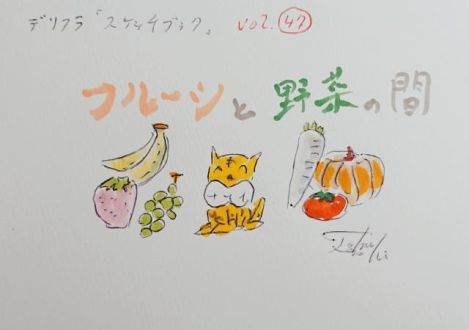 デリフラ「スケッチブック」 vol.47
フルーツと野菜の間